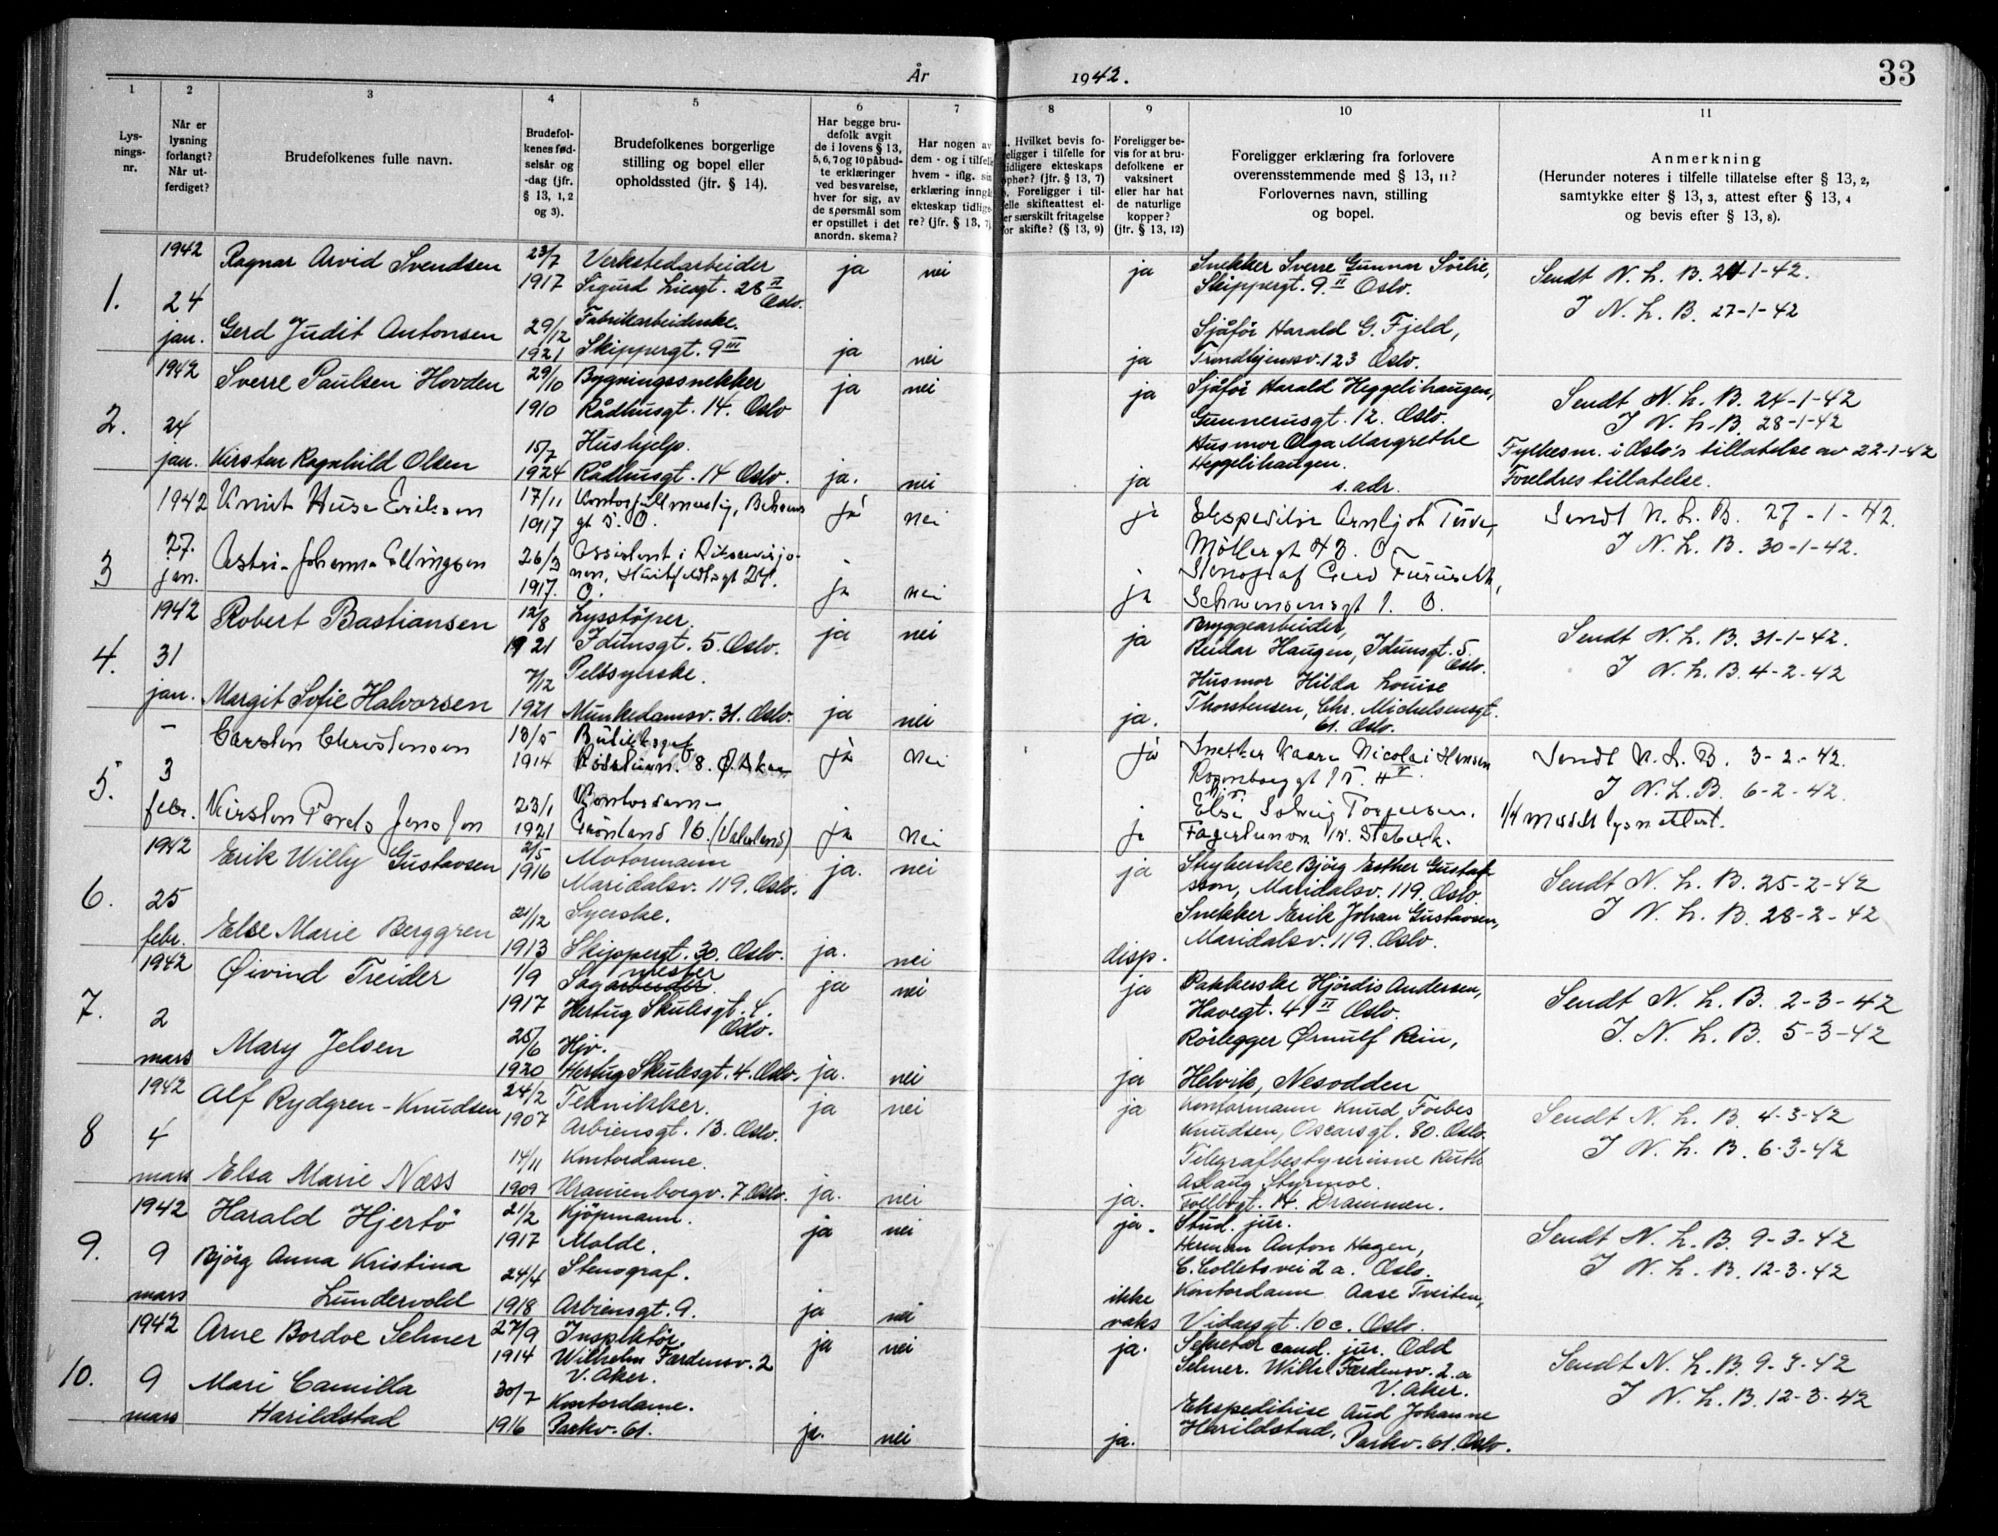 År 1942. 33
1 2 3 4 5 6 7 8 9 10 11
Lys-
nings-
nr.
Når er
lysning
forlangt?
Når ut-
ferdiget?
Brudefolkenes fulle navn.
Brudefol-
kenes fød-
selsår og
-dag (jfr.
§ 13, 1, 2
og 3).
Brudefolkenes borgerlige
stilling og bopel eller
opholdssted (jfr. § 14).
Har begge bru-
defolk avgit
de i lovens § 13,
5, 6, 7 og 10 påbud-
te erklæringer
ved besvarelse,
hver for sig, av
de spørsmål som
er opstillet i det
anordn. skema?
Har nogen av
dem - og i tilfelle
hvem - iflg. sin
erklæring inngått
ekteskap tidlige-
re? (jfr. § 13, 7)
Hvilket bevis fo-
religger i tilfelle for
tidligere ekteskaps
ophør? (jfr. § 13, 7)
Foreligger i til-
felle skifteattest el-
ler særskilt fritagelse
for skifte? (§ 13, 9)
Foreligger be-
vis for at bru-
defolkene er
vaksinert
eller har hat
de naturlige
kopper?
(jfr. § 13, 12)
Foreligger erklæring fra forlovere
overensstemmende med § 13, 11?
Forlovernes navn, stilling
og bopel.
Anmerkning
(Herunder noteres i tilfelle tillatelse efter § 13, 2,
samtykke efter § 13, 3, attest efter § 13, 4
og bevis efter § 13, 8).
1. 1942 24 jan.
Ragnar Arvid Svendsen 23/7 1917 Verkstedarbeider
Sigurd Liesgt. 28 II Oslo. ja nei ja
Snekker Sverre Gunnar Sörlie,
Skippergt. 9 II Oslo.
Sendt N. L. B. 24-1-42.
I N. L. B. 27-1-42
Gerd Judit Antonsen 29/12 1921 Fabrikarbeiderske.
Skippergt. 9 III ja nei ja
Sjåför Harald G. Fjeld,
Trondhjemsv. 123 Oslo.
2. 1942 24 jan.
Sverre Paulsen Hovden 29/10 1910 Bygningssnekker
Rådhusgt. 14. Oslo ja nei ja
Sjåför Harald Heggelihaugen,
Gunnerusgt. 12. Oslo.
Sendt N. L. B. 24-1-42
I N. L. B. 28-1-42
Kirsten Ragnhild Olsen 15/7 1924 Hushjelp.
Rådhusgt. 14 Oslo. ja. nei ja
Husmor Olga Margrethe
Heggelihaugen.
s. adr.
Fylkesm. i Oslo's tillatelse av 22-1-42
Foreldres tillatelse.
3 1942 27. jan.
Knut Huse Eriksen 17/11 1917
gt 5. O. ja nei ja
Sendt N. L. B. 27-1-42.
I N. L. B. 30-1-42.
Astri Johanne Ellingsen 26/3 1917. Assistent i Riksrevisjo-
nen, Huitfeldtsgt 24.
O. ja nei ja
Stenograf Gerd Furuseth,
Schwensensgt 1. O.
4. 1942 31 jan.
Robert Bastiansen 12/8 1921 Lysstöper.
Idunsgt. 5. Oslo. ja nei ja
Bryggearbeider,
Reidar Haugen, Idunsgt. 5.
Oslo.
Sendt N. L. B. 31-1-42.
I N. L. B. 4-2-42
Margit Sofie Halvorsen 7/12 1921 Pelssyerske.
Munkedamsv. 31. Oslo. ja nei ja.
Husmor Hilda Louise
Thorstensen, Chr. Michelsensgt.
61. Oslo.
5. - 3 febr.
Carsten Christensen 18/5 1914
8. Ø. Aker ja nei ja
Snekker Kaare Nicolai Hansen
Rosenborggt 15.
Sendt N. L. B. 3-2-42.
I N. L. B. 6-2-42.
Kirsten Jensen 23/1 1921 Kontordame
Grønland 16. ja nei ja
Else Solveig Torgersen.
Fagerlunvn 15. Stabekk.
6. 1942 25 febr.
Erik Willy Gustavsen 2/5 1916 Motormann
Maridalsv. 119. Oslo. ja. nei ja
Stryherske Björg Esther Gustaf-
sson, Maridalsv. 119. Oslo.
Sendt N. L. B. 25-2-42
I N. L. B. 28-2-42
Else Marie Berggren 21/12 1913 Syerske.
Skippergt. 30. Oslo. ja. nei disp.
Snekker Erik Johan Gustavsen,
Maridalsv. 119. Oslo.
7. 1942 2 mars
Øivind Treider 1/9 1917 Sagarbeider mester
Hertug Skulesgt. 4.
Oslo. ja nei ja
Pakkerske Hjördis Andersen,
Havegt. 4 II Oslo.
Sendt N. L. B. 2-3-42
I. N. L. B. 5-3-42
Mary Jelsen 25/6 1920 Hjv.
Hertug Skulesgt. 4. Oslo. ja. nei ja
Rörlegger Ørnulf Rein,
Helvik, Nesodden
8 1942 4 mars
Alf Rydgren-Knudsen 24/2 1907 Teknikker.
Arbiensgt. 13. Oslo. ja nei ja
Kontormann Knud Forbes
Knudsen, Oscarsgt. 80. Oslo.
Sendt N. L. B. 4-3-42
I N. L. B. 6-3-42
Elsa Marie Næss 14/11 1909 Kontordame.
Uranienborgv. 7 Oslo. ja. nei ja.
Telegrafbestyrerinne Ruth
Aslaug Styrmoe.
Tollbogt. 14. Drammen.
9. 1942 9 mars
Harald Hjertö 21/2 1917 Kjöpmann.
Molde. ja nei ja.
Stud. jur.
Herman Anton Hagen,
C. Colletsvei 2 a. Oslo.
Sendt N. L. B. 9-3-42
I N. L. B. 12-3-42
Björg Anna Kristina
Lundervold 24/4 1918 Stenograf.
Arbiensgt. 9. ja nei ikke
vaks
Kontordame Aase Tveiten,
Vidarsgt. 10 c. Oslo.
10. 1942 9 mars
Arne Bordoe Selmer 27/9 1914 Inspektör
Wilhelm Færdensv. 2
V. Aker. ja nei ja.
Sekretær cand. jur. Odd
Selmer. Wilh. Færdensv. 2. a
V. Aker.
Sendt N. L. B. 9-3-42
I N. L. B. 12-3-42
Mari Camilla
Harildstad 30/7 1916 Kontordame.
Parkv. 61. ja. nei ja.
Ekspeditrise Aud Johanne
Harildstad, Parkv. 61. Oslo.